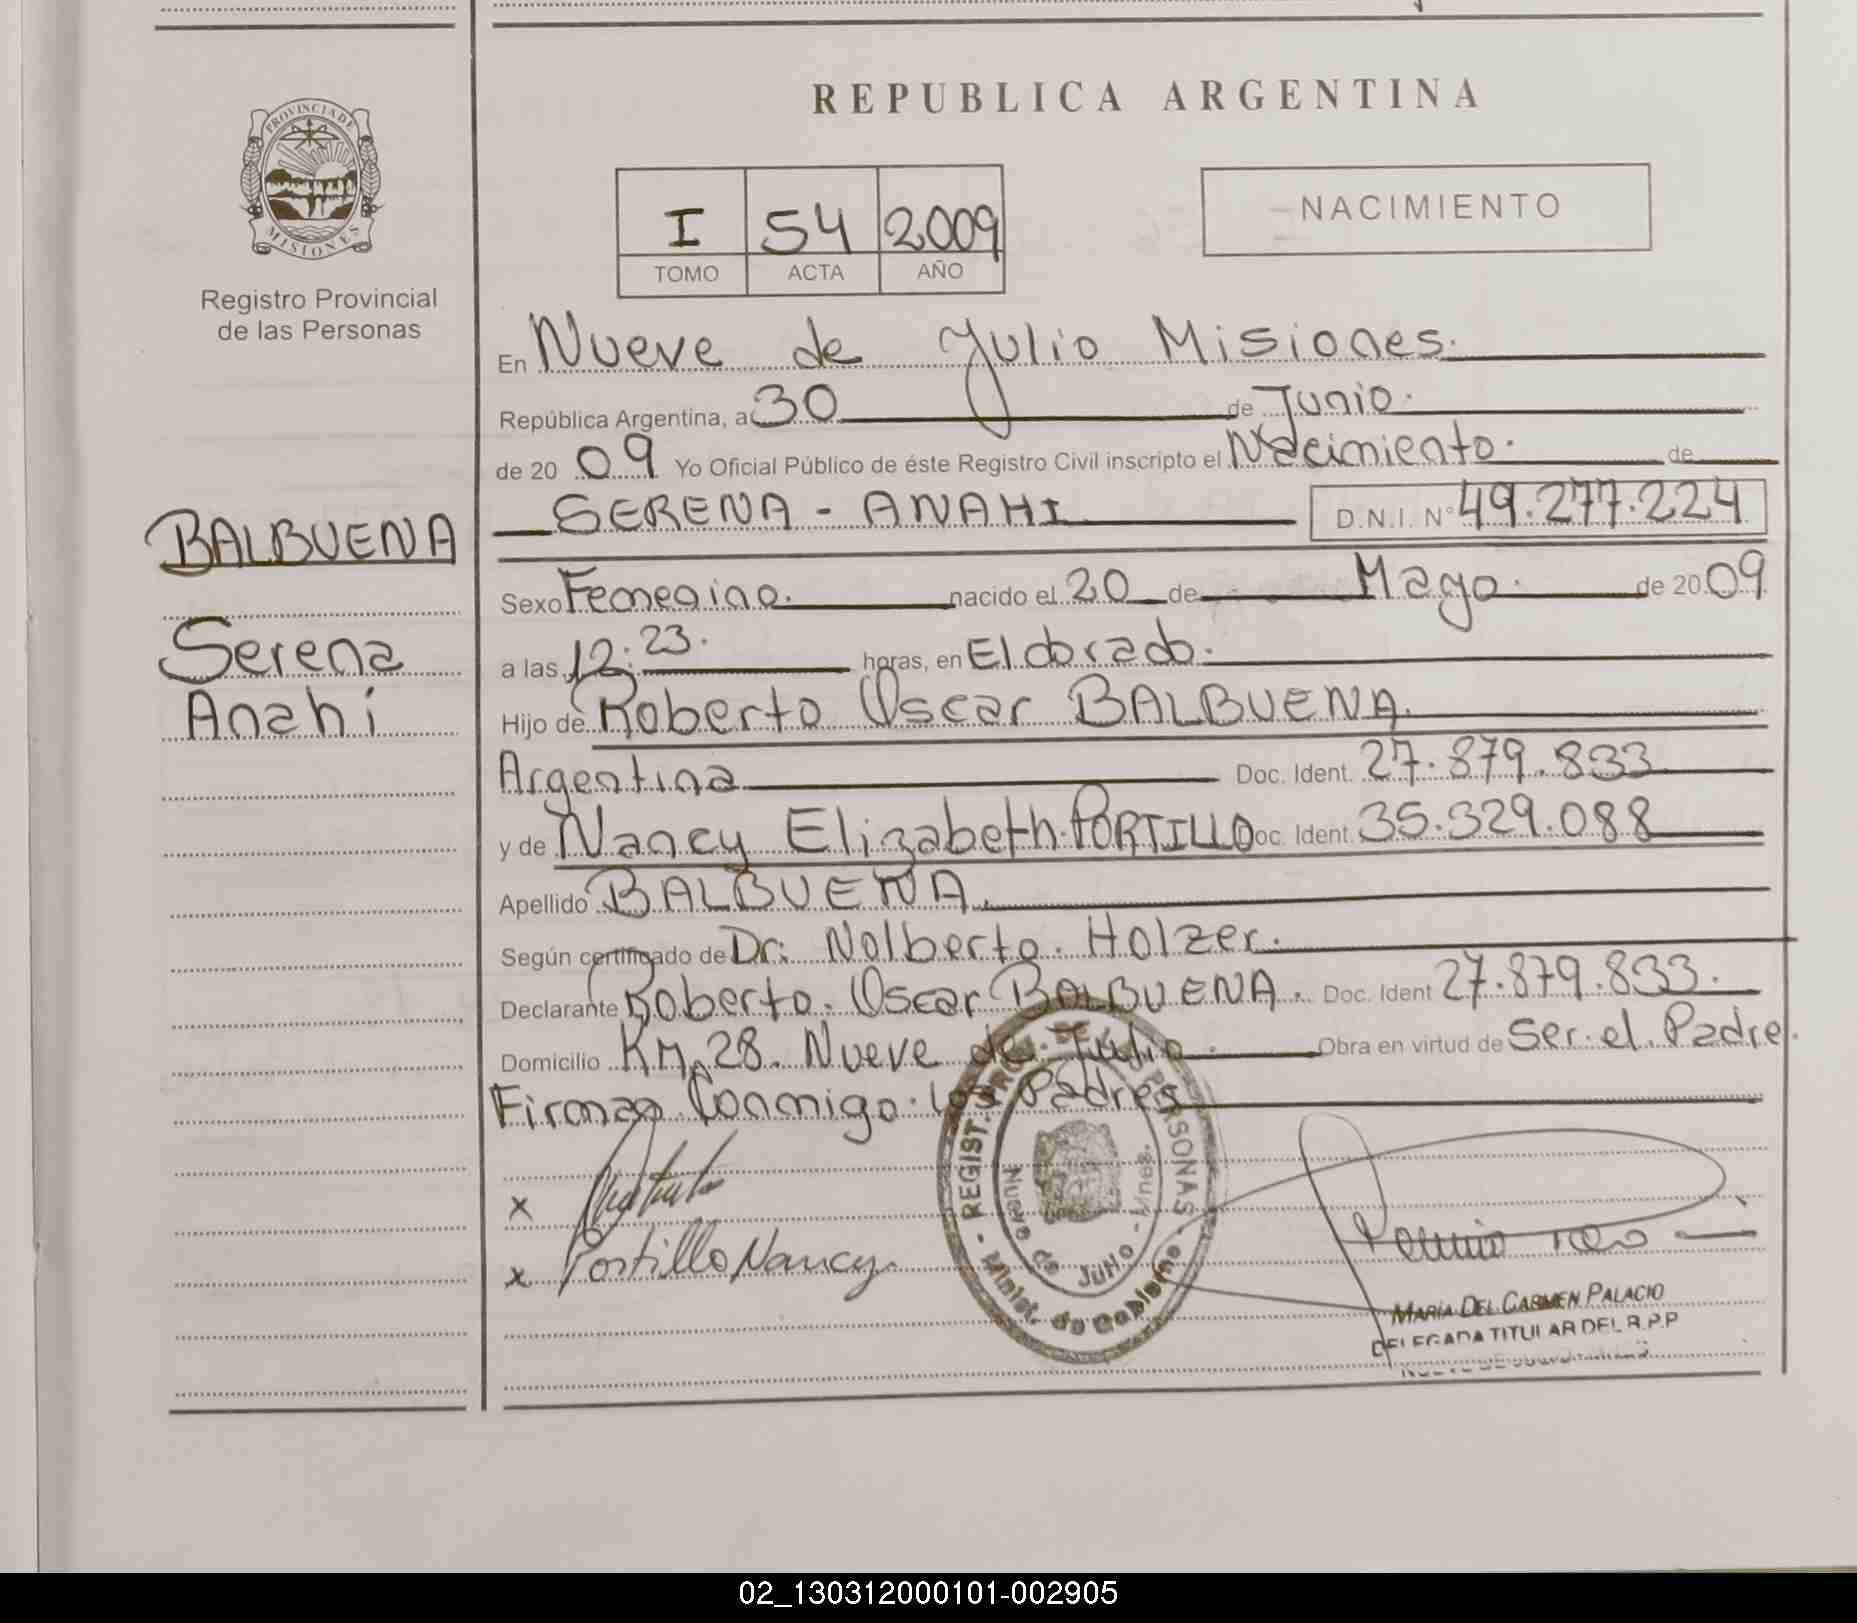 REPUBLICA ARGENTINA
PROVINCIA DE
MISIONES
Registro Provincial
de las Personas
I 54 2009
TOMO ACTA AÑO
NACIMIENTO
En Nueve de Julio Misiones.
República Argentina, a 30 de Junio.
de 20 09 Yo Oficial Público de éste Registro Civil inscripto el Nacimiento. de
SERENA - ANAHI D.N.I. N° 49.277.224
BALBUENA
Serena
Anahi
Sexo Femenino. nacido el 20 de Mayo. de 20 09
a las 12:23. horas, en Eldorado.
Hijo de Roberto Oscar BALBUENA.
Argentina Doc. Ident. 27.879.833
y de Nancy Elizabeth PORTILLO Doc. Ident. 35.329.088
Apellido BALBUENA.
Según certificado de Dr: Nolberto. Holzer.
Declarante Roberto. Oscar BALBUENA. Doc. Ident 27.879.833.
Domicilio Km 28. Nueve de Julio. Obra en virtud de Ser. el. Padre.
Firman Conmigo. los Padres
x
x Portillo Nancy.
REGIST. PROV. DE PERSONAS
Nueve de Julio - Mnes.
Minist. de Gobierno
MARIA DEL CARMEN PALACIO
DELEGADA TITULAR DEL R.P.P
02_130312000101-002905